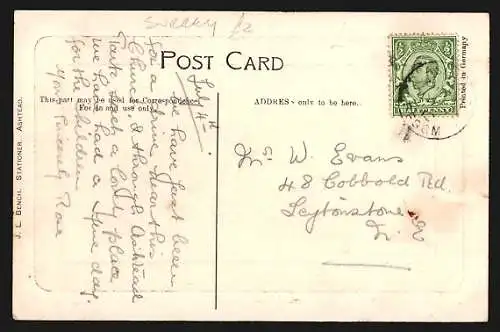 SURREY £2
POST CARD
This part may be used for Correspondence
For an and use only.
ADDRES - only to be here.
Printed in Germany
J. E. BENCH, STATIONER, ASHTEAD.
July 4th
We have just been
for a drive near this
Church & through Ashtead
Park such a lovely place
we have had a fine day
for the children
Yours Sincerely Rose
Mrs W. Evans
48 Cobbold Rd.
Leytonstone